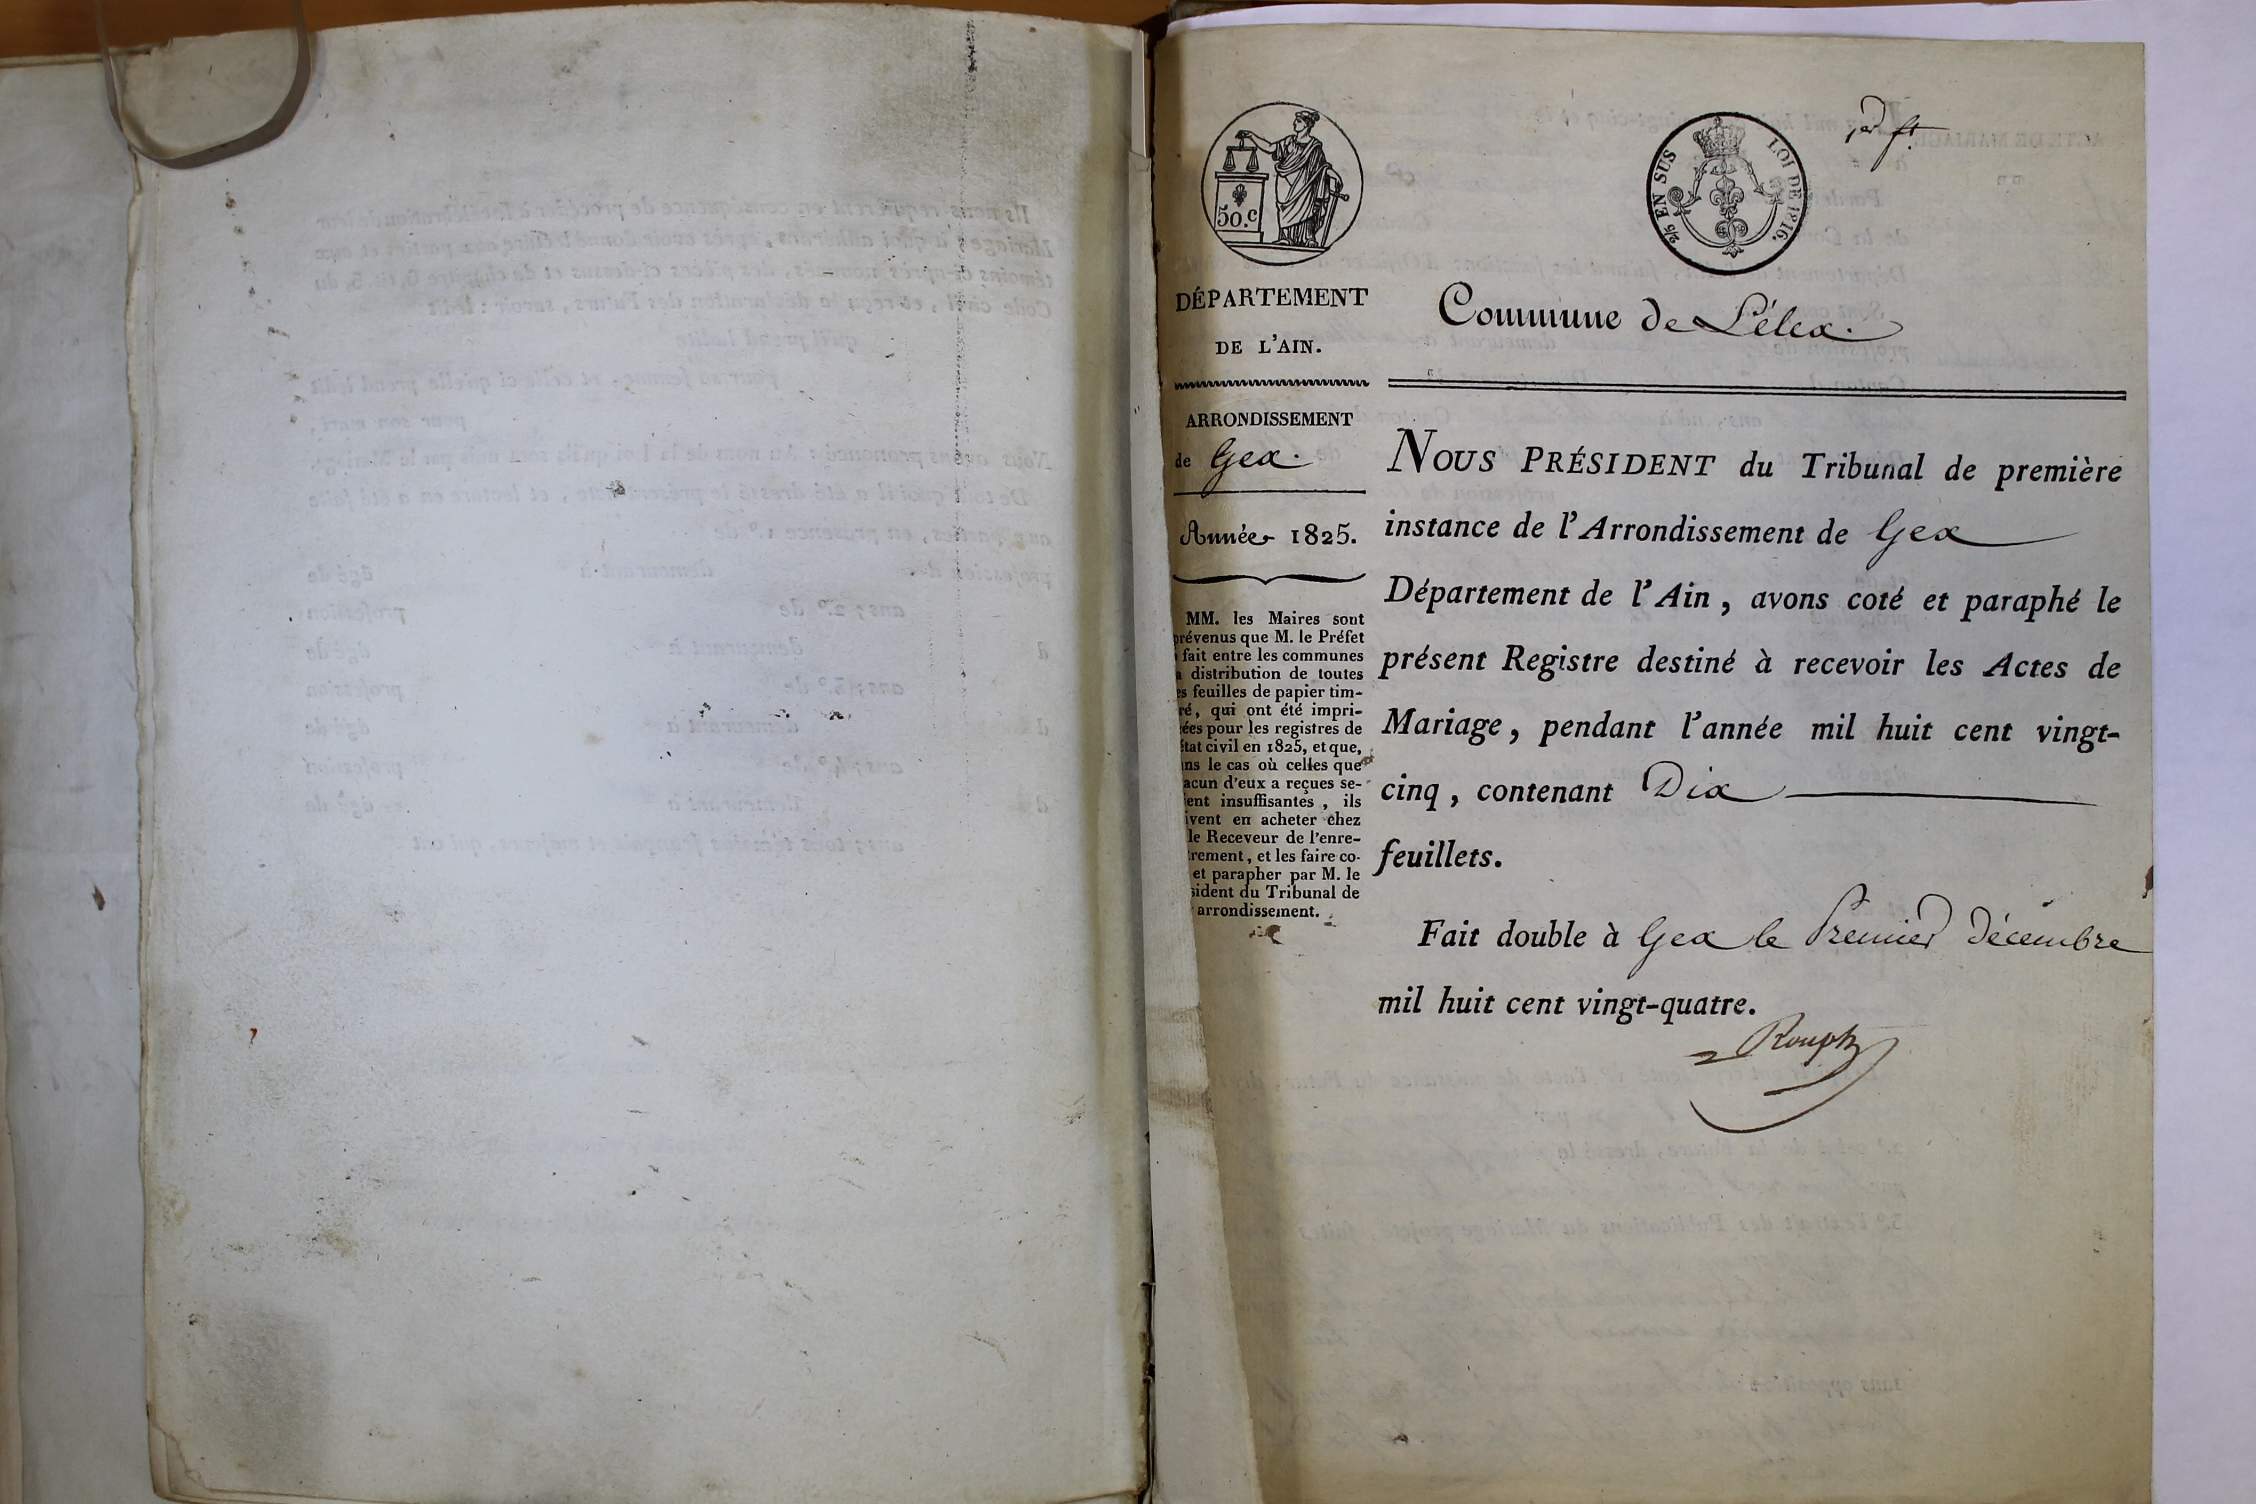 50.c
2/5 EN SUS LOI DE 1816.
1er ft
DÉPARTEMENT
DE L'AIN.
Commune de Lélex.
ARRONDISSEMENT
de Gex.
Année 1825.
MM. les Maires sont
prévenus que M. le Préfet
fait entre les communes
distribution de toutes
es feuilles de papier tim-
ré, qui ont été impri-
ées pour les registres de
état civil en 1825, et que,
ns le cas où celles que
acun d'eux a reçues se-
ent insuffisantes, ils
ivent en acheter chez
le Receveur de l'enre-
trement, et les faire co-
et parapher par M. le
sident du Tribunal de
arrondissement.
NOUS PRÉSIDENT du Tribunal de première
instance de l'Arrondissement de Gex
Département de l'Ain, avons coté et paraphé le
présent Registre destiné à recevoir les Actes de
Mariage, pendant l'année mil huit cent vingt-
cinq, contenant Dix
feuillets.
Fait double à Gex le Premier Décembre
mil huit cent vingt-quatre.